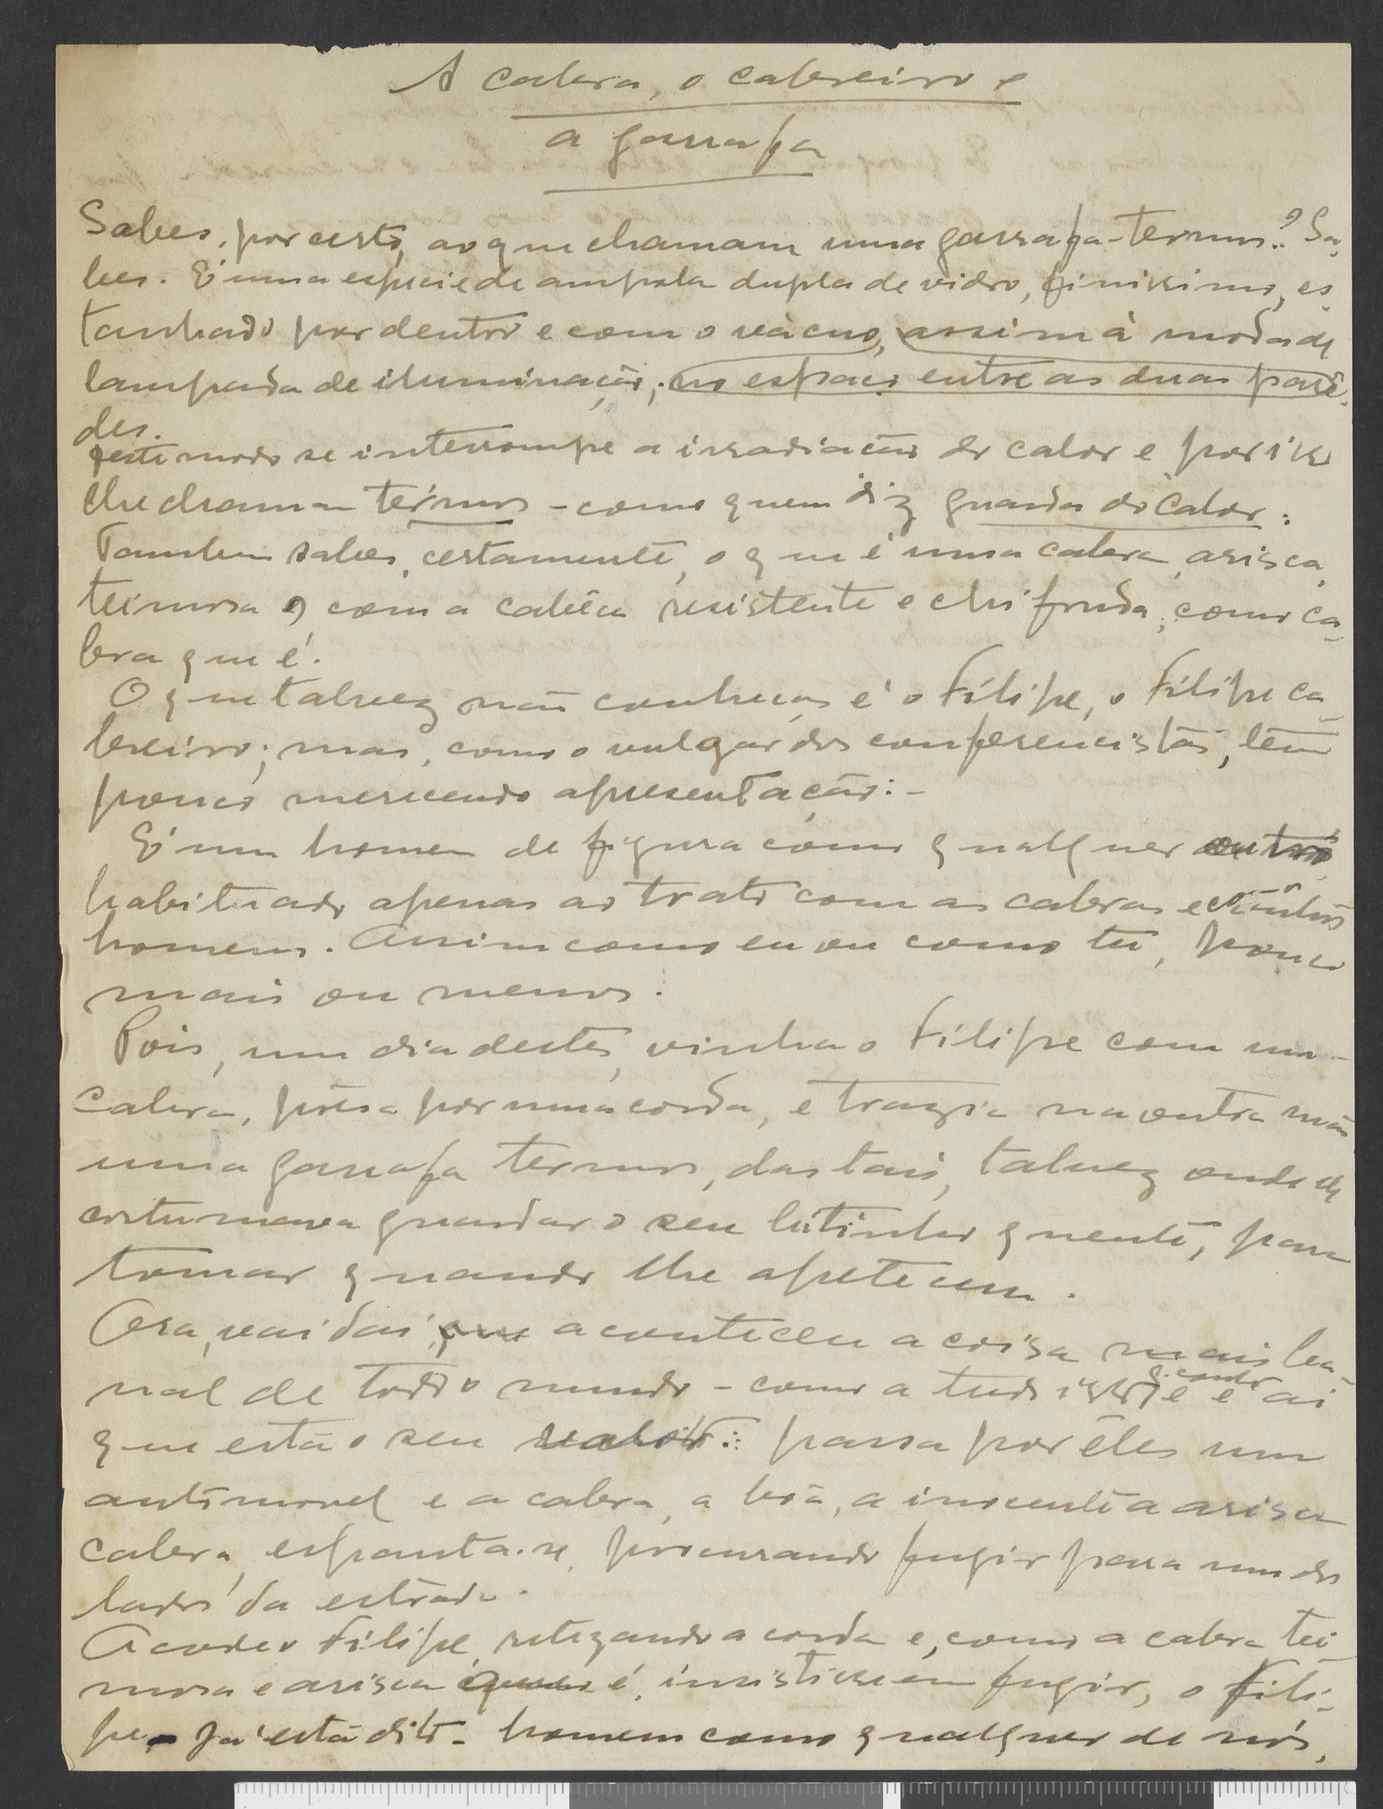 A cabra, o cabreiro e
a garrafa
Sabes, por certo, ao que chamam uma garrafa-termos? Sa-
bes. É uma espécie de ampola dupla de vidro, finissimo, es-
tanhado por dentro e com o vácuo, assim à moda de
lampada de iluminação, no espaço entre as duas pare-
des.
Deste modo se interrompe a irradiação do calor e por isso
lhe chamam térmos - como quem diz guarda do calor.
Tambem sabes, certamente, o que é uma cabra, arisca,
teimosa e com a cabêça resistente e chifruda, como ca-
bra que é.
O que talvez não conheças é o Filipe, o Filipe ca-
breiro; mas, como o vulgar dos conferencistas, tem
pouco merecendo apresentação: -
É um homem de figura como qualquer outro,
habituado apenas ao trato com as cabras e
homens. Assim como eu ou como tu, pouco
mais ou menos.
Pois, um dia destes, vinha o Filipe com uma
cabra, prêsa por uma corda, e trazia na outra mão
uma garrafa termos, das tais, talvez onde
costumava guardar o seu leitinho quente, para
tomar quando lhe apetecem.
Ora, vai daí, que aconteceu a coisa mais ba-
nal de todo o mundo - como a tudo isso e é aí
que está o seu valor: passa por êles um
automovel e a cabra, a boa, a inocente a arisca
cabra, espanta-se, procurando fugir para um dos
lados da estrada.
Acode o Filipe, retezando a corda e, como a cabra tei-
mosa e arisca que é, insistisse em fugir, o Fili-
pe - já está dito - homem como qualquer de nós,